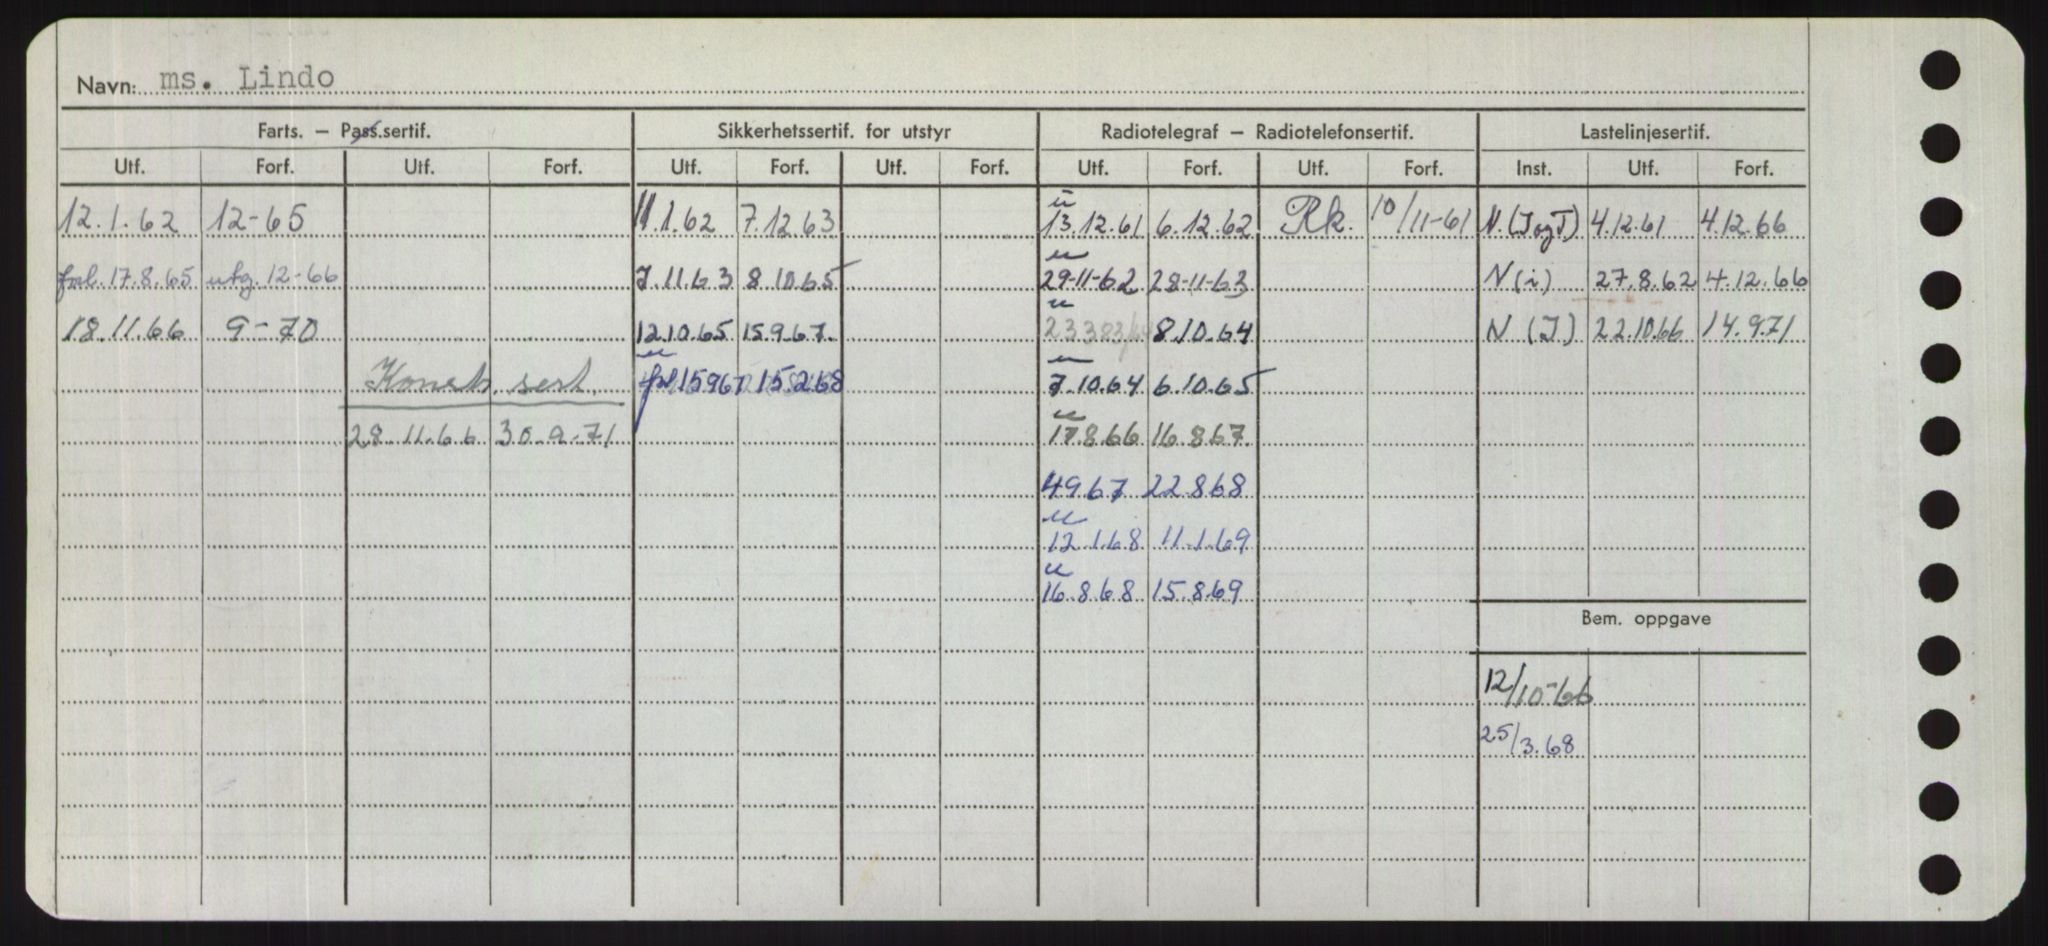 Navn: ms. Lindo
Farts. — Pass.sertif. Sikkerhetssertif. for utstyr Radiotelegraf — Radiotelefonsertif. Lastelinjesertif.
Utf. Forf. Utf. Forf. Utf. Forf. Utf. Forf. Utf. Forf. Utf. Forf. Inst. Utf. Forf.
12.1.62 12-65 11.1.62 7.12.63 u 13.12.61 6.12.62 Rk. 10/11-61 N.(J og T) 4.12.61 4.12.66
fol. 17.8.65 utg. 12-66 7.11.63 8.10.65 u 29-11-62 28-11-63 N(i) 27.8.62 4.12.66
18.11.66 9-70 12.10.65 15.9.67. u 8.10.64 N (J) 22.10.66 14.9.71
Konstr. sert. u fol 15.9.67 15.2.68 u 7.10.64 6.10.65
28.11.66 30.9.71 u 17.8.66 16.8.67.
4.9.67 22.8.68
u 12.1.68 11.1.69
u 16.8.68 15.8.69
Bem. oppgave
12/10-66
25/3.68